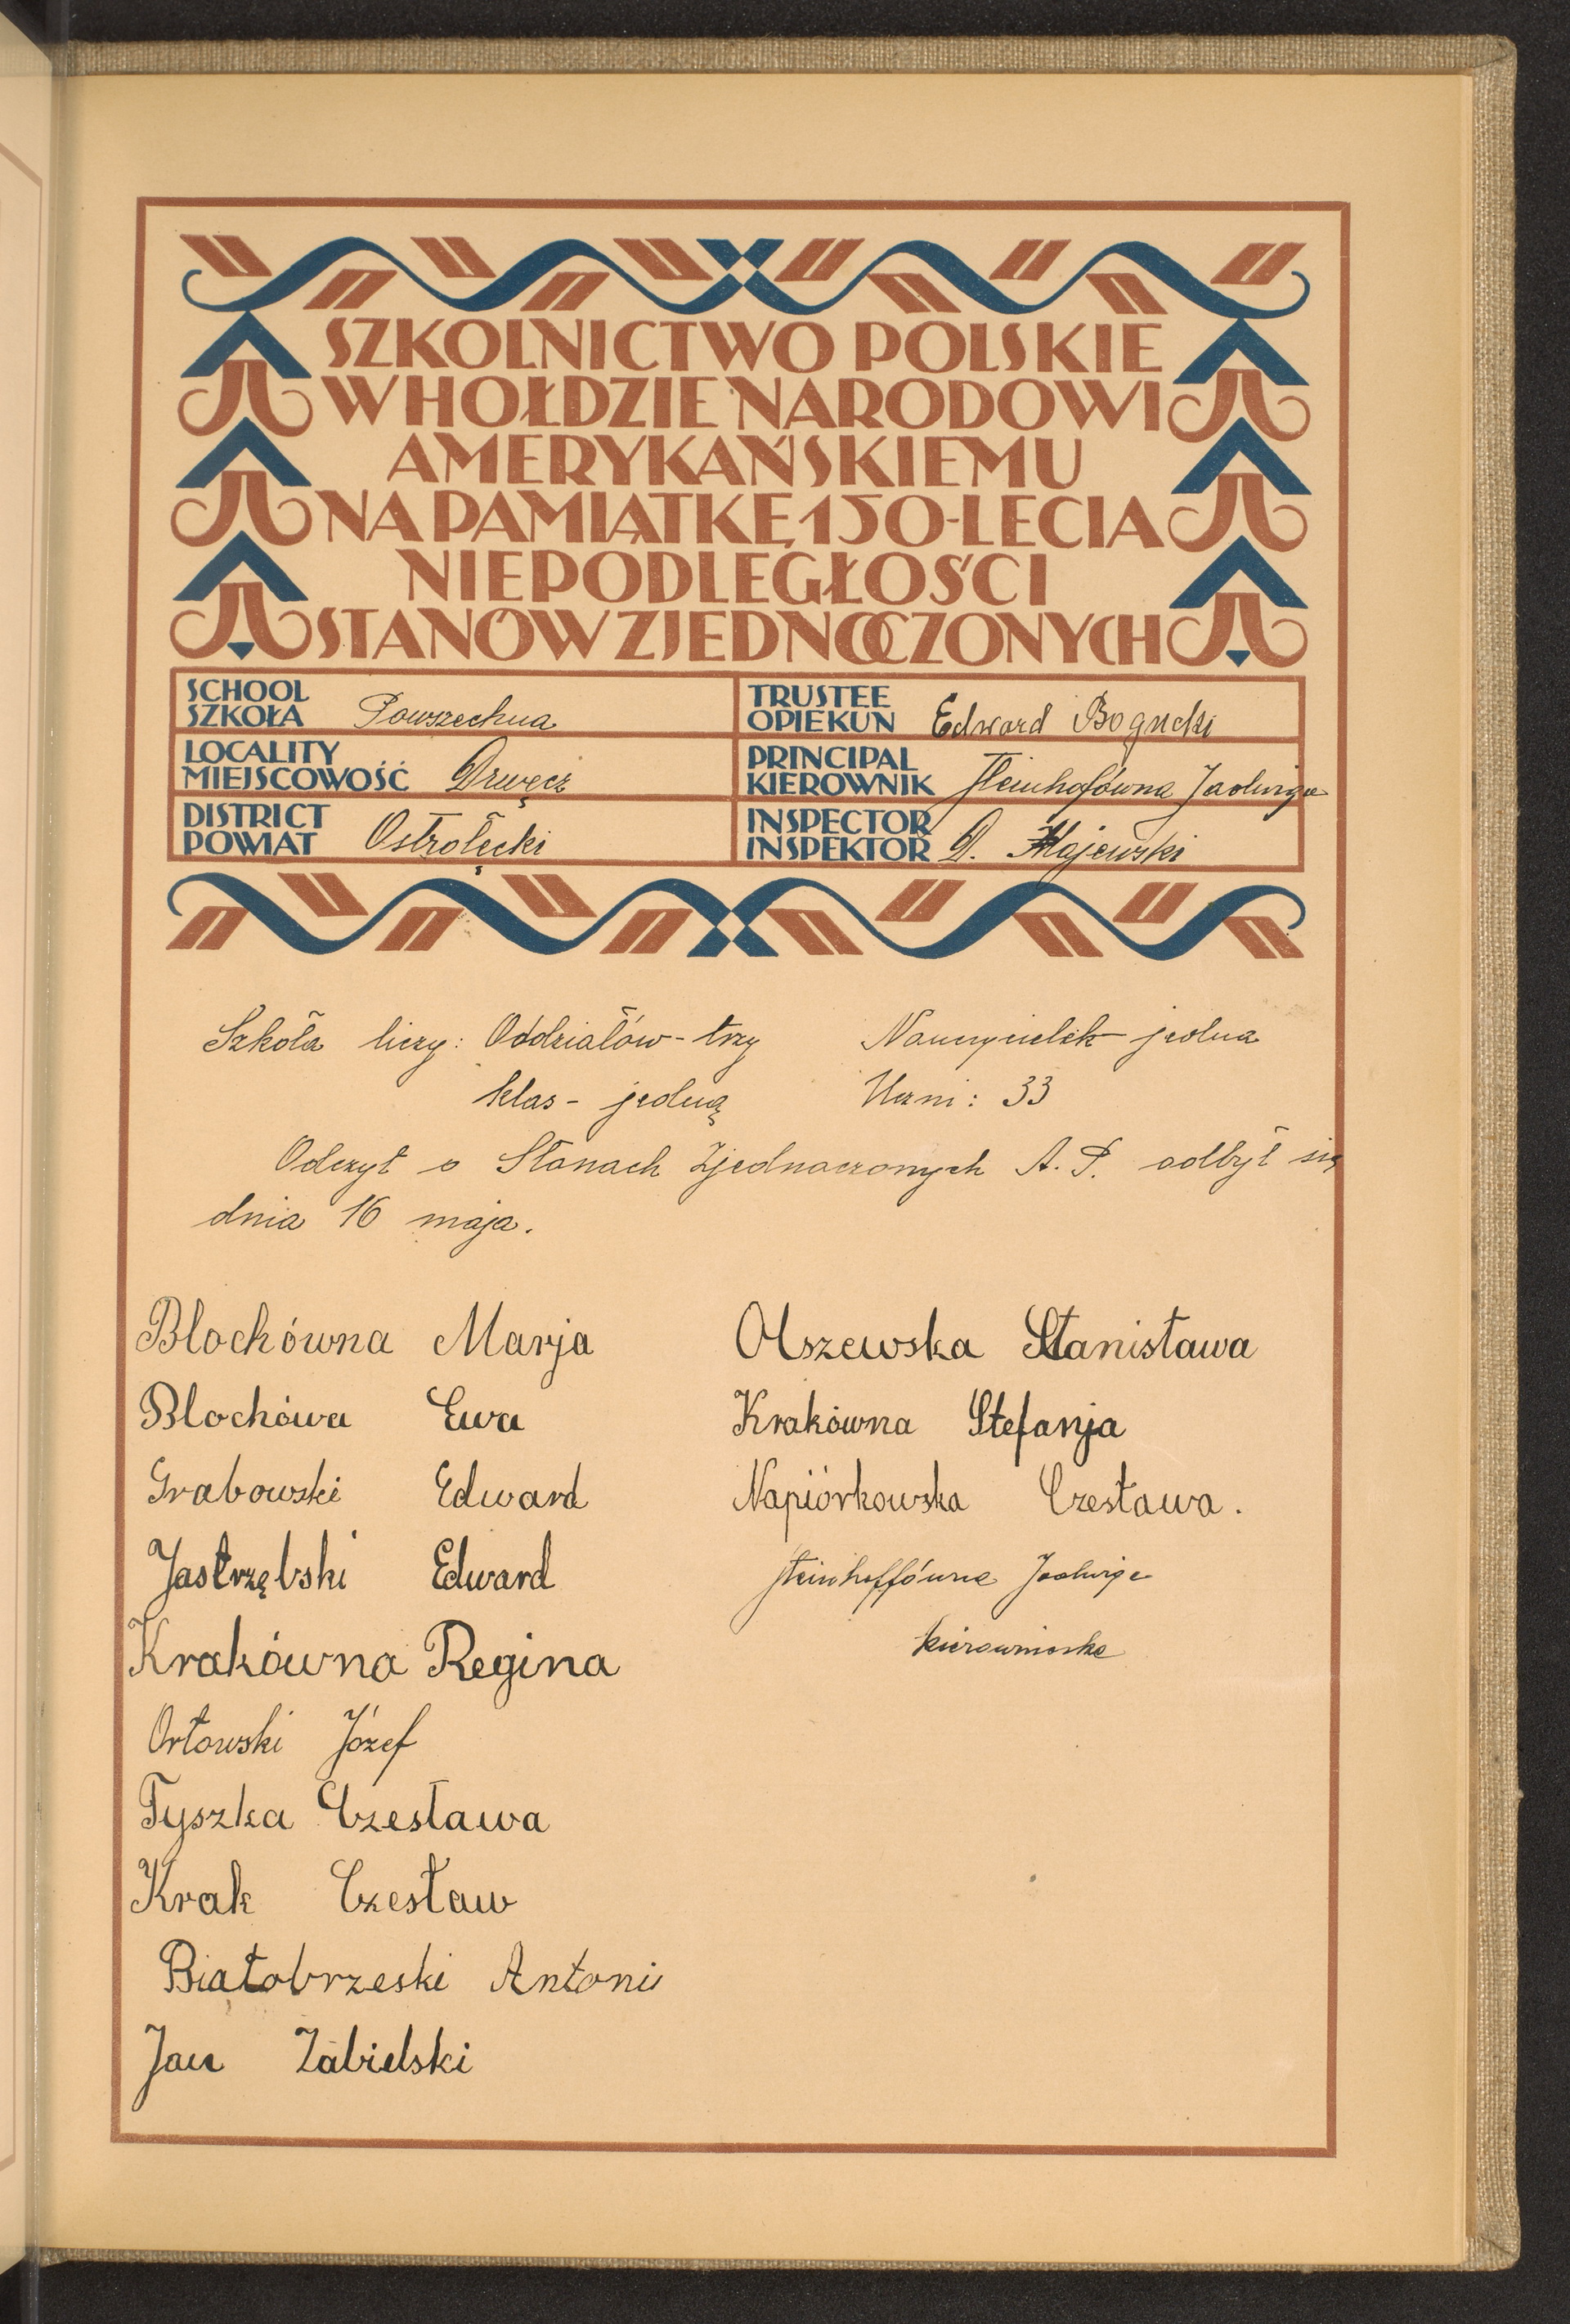 SZKOLNICTWO POLSKIE
W HOŁDZIE NARODOWI
AMERYKAŃSKIEMU
NA PAMIĄTKĘ 150-LECIA
NIEPODLEGŁOŚCI
STANÓW ZJEDNOCZONYCH
SCHOOL
SZKOŁA Powszechna
TRUSTEE
OPIEKUN Edward Bogucki
LOCALITY
MIEJSCOWOŚĆ Drwęcz
PRINCIPAL
KIEROWNIK Steinhofówna Jadwiga
DISTRICT
POWIAT Ostrołęcki
INSPECTOR
INSPEKTOR D. Majewski
Szkoła liczy: Oddziałów - trzy Nauczycielek - jedna
klas - jedną Uczni: 33
Odczyt o Stanach Zjednoczonych A. P. odbył się
dnia 16 maja.
Blochówna Marja
Blochówa Ewa
Grabowski Edward
Jastrzębski Edward
Krakówna Regina
Orłowski Józef
Tyszka Czesława
Krak Czesław
Białobrzeski Antoni
Jan Zabielski
Olszewska Stanisława
Krakówna Stefanja
Napiórkowska Czesława.
Steinhoffówna Jadwiga
kierowniczka